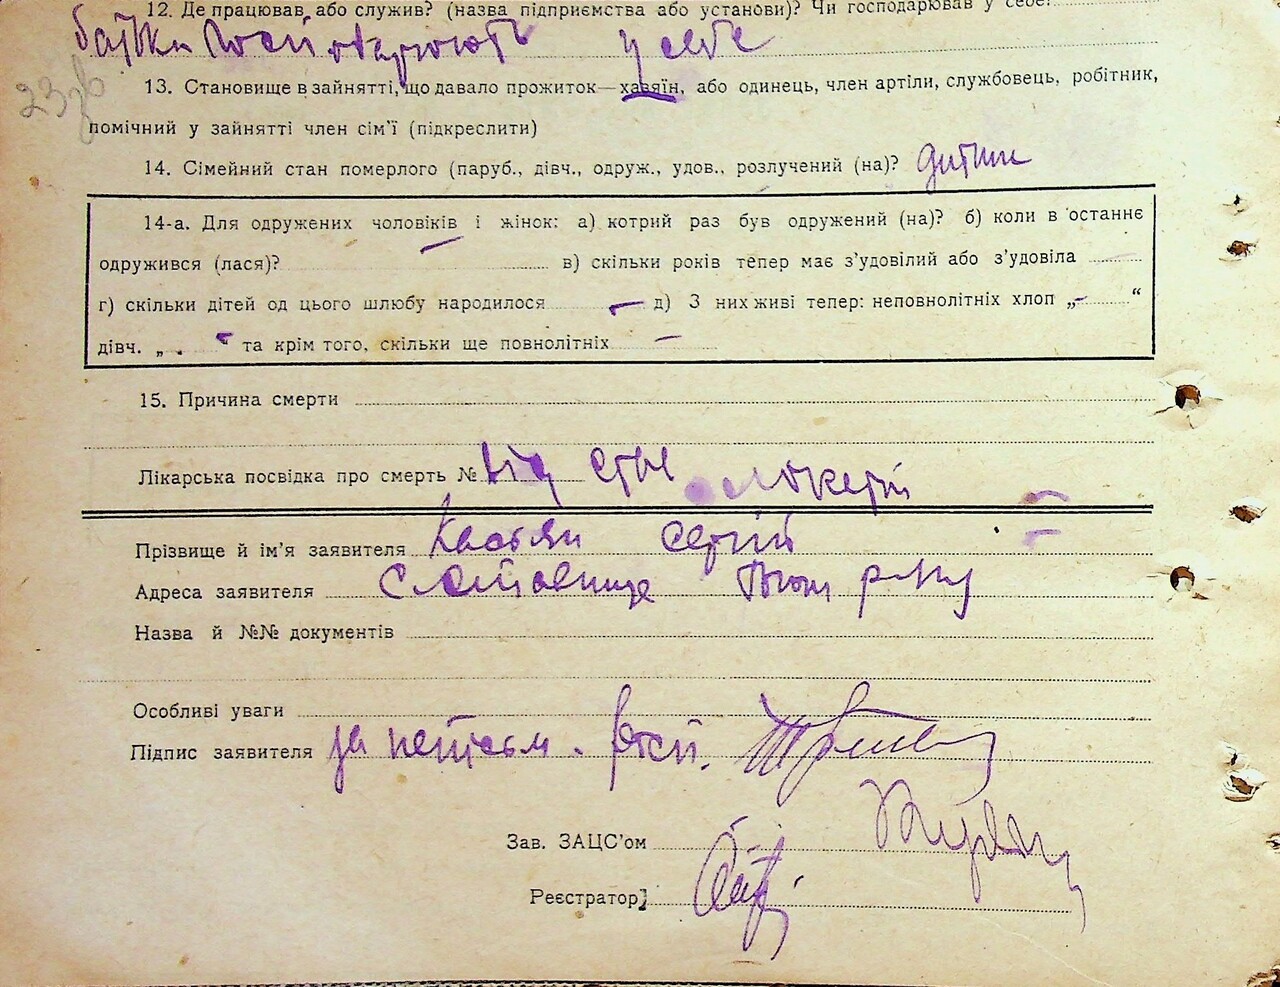 12. Де працював або служив? (назва підприємства або установи)? Чи господарював у себе?
батьки господарюють у себе
13. Становище в зайнятті, що давало прожиток — хазяїн, або одинець, член артілі, службовець, робітник,
помічний у зайнятті член сім'ї (підкреслити)
14. Сімейний стан померлого (паруб., дівч., одруж., удов., розлучений (на)? дитина
14-а. Для одружених чоловіків і жінок: а) котрий раз був одружений (на)? б) коли в останнє
одружився (лася)? — в) скільки років тепер має з'удовілий або з'удовіла
г) скільки дітей од цього шлюбу народилося — д) З них живі тепер: неповнолітніх хлоп „—“
дівч. „ — “ та крім того, скільки ще повнолітніх —
15. Причина смерти
Лікарська посвідка про смерть № від
Прізвище й ім'я заявителя Касьян Сергій
Адреса заявителя
Назва й №№ документів
Особливі уваги
Підпис заявителя за
Зав. ЗАЦС'ом
Реєстратор